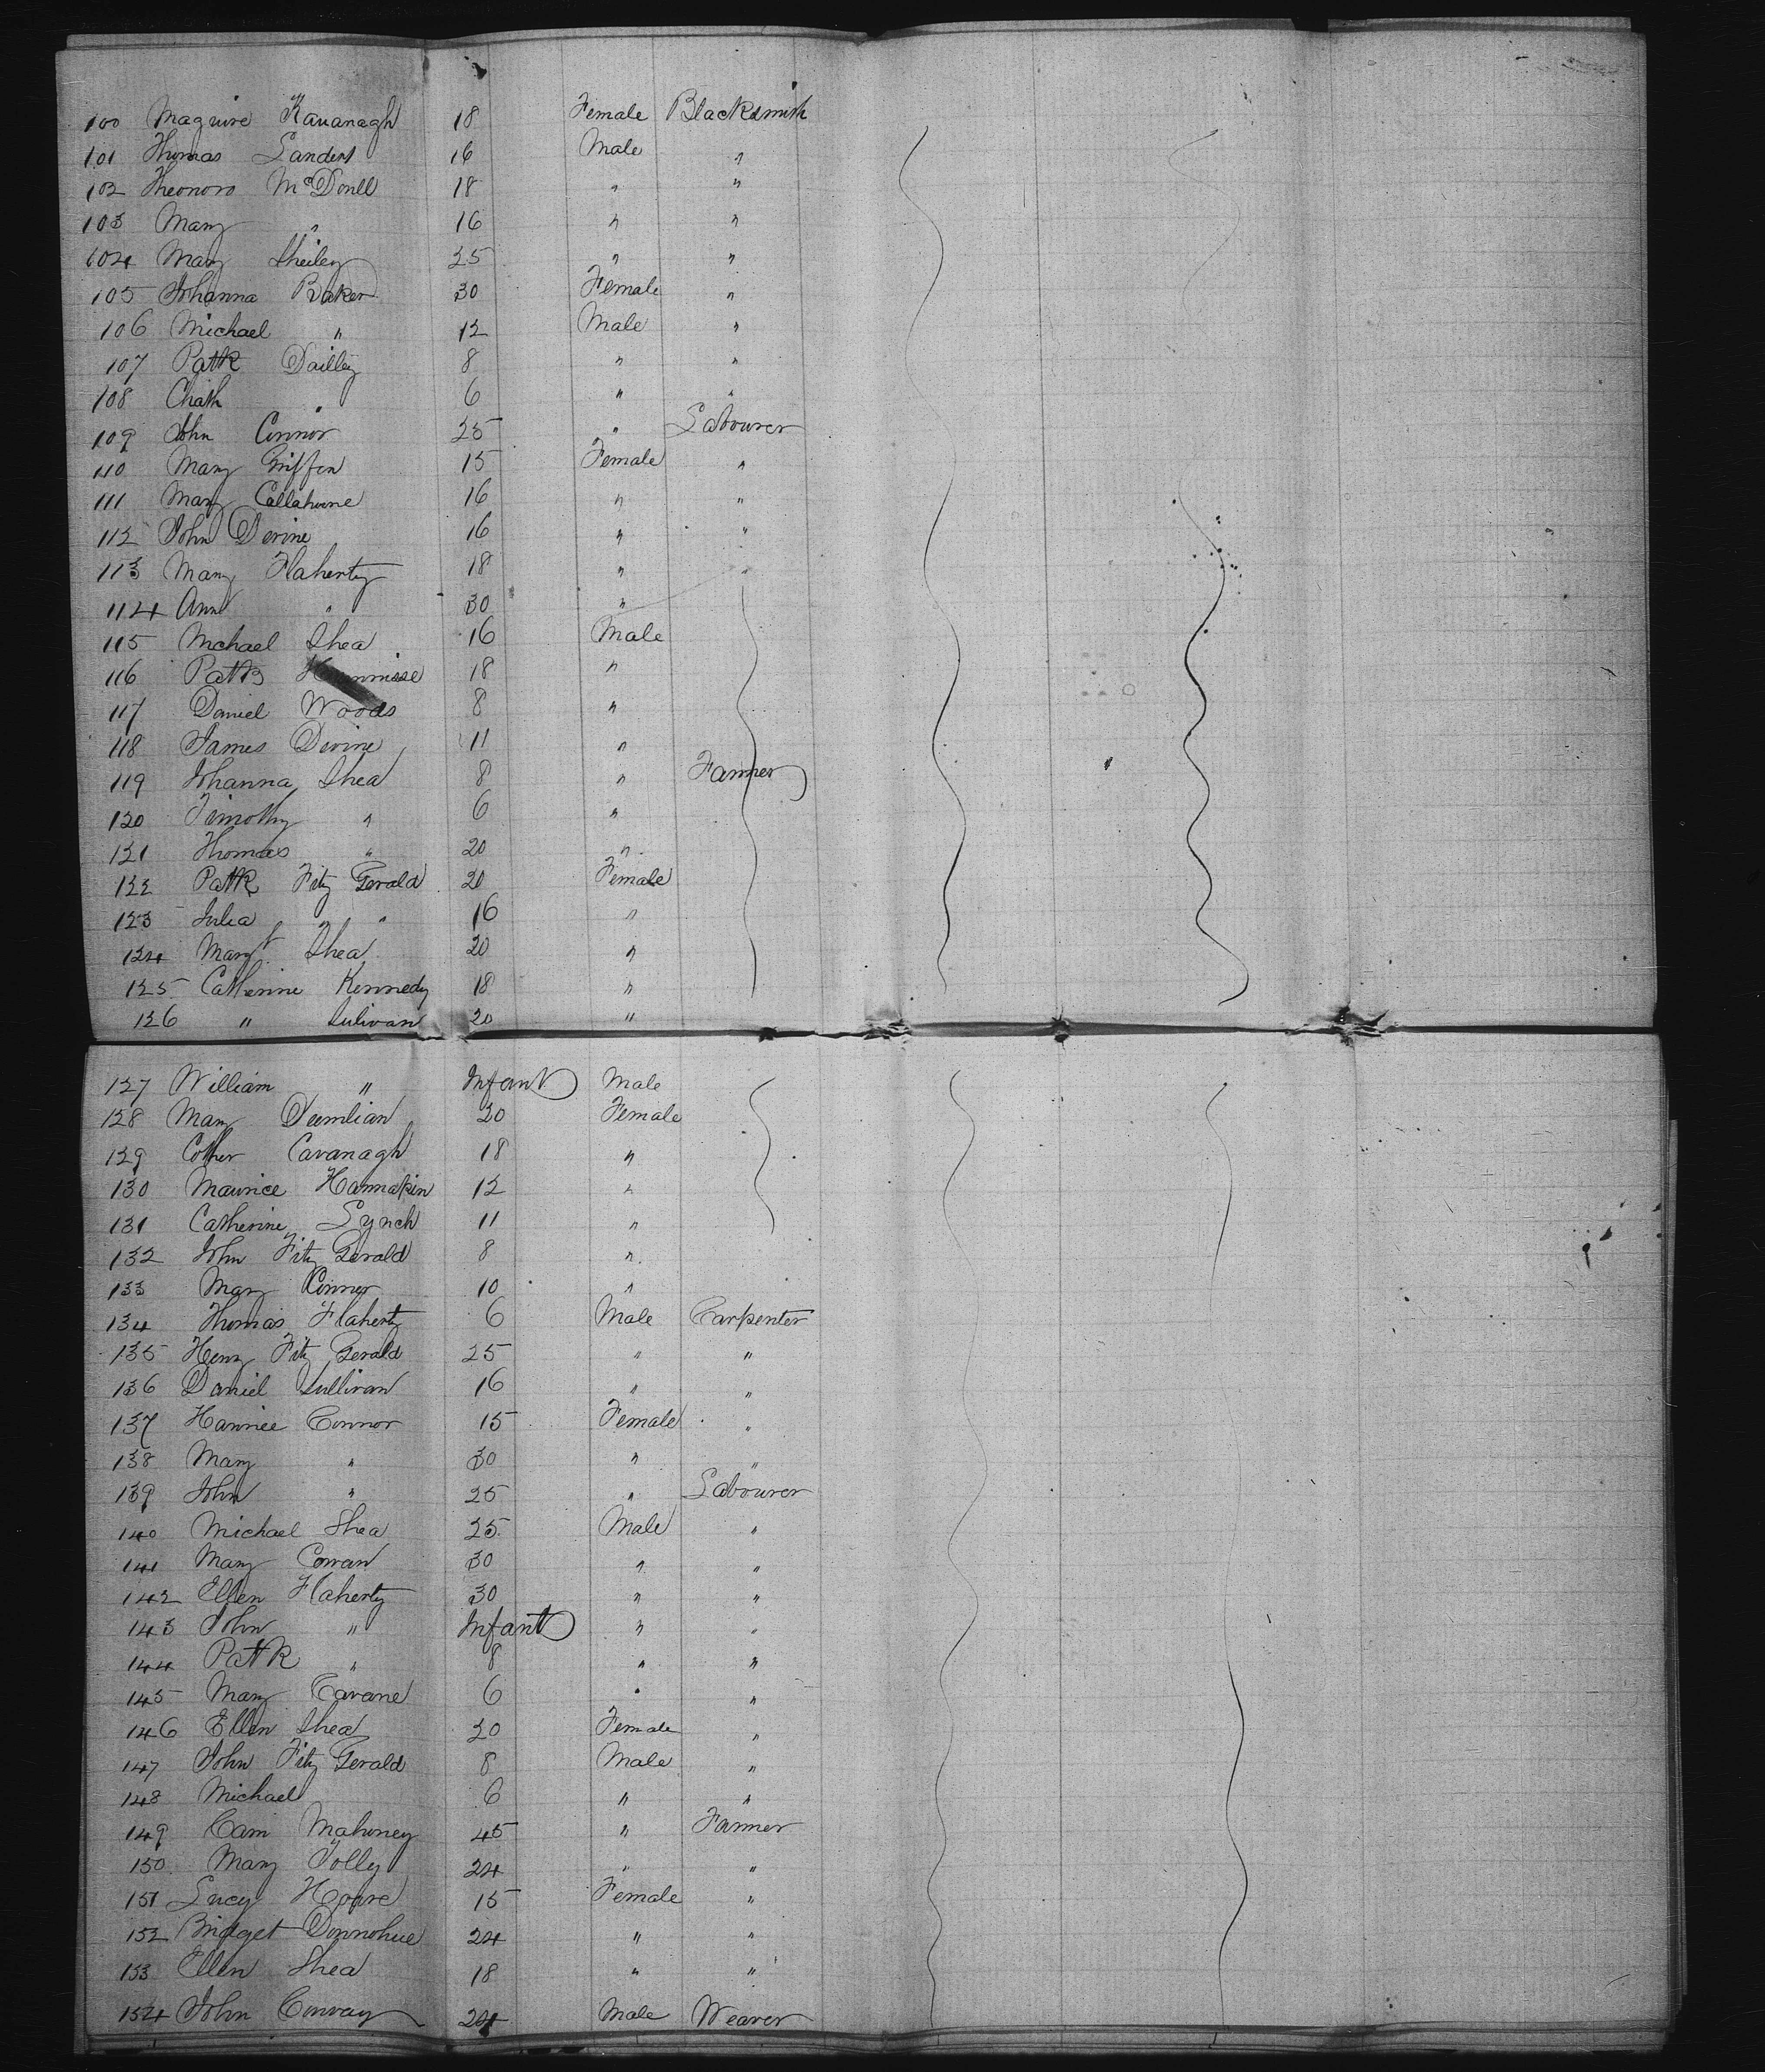 100 Maguire Kavanagh 18 Female Blacksmith
101 Thomas Landers 16 Male "
102 Theonoro McDonll 18 " "
103 Mary " 16 " "
104 Mary Sheiley 25 " "
105 Johanna Baker 30 Female "
106 Michael " 12 Male "
107 Patk Dailley 8 " "
108 Chath " 6 " "
109 John Connor 25 " Labourer
110 Mary Griffin 15 Female "
111 Mary Callahane 16 " "
112 John Devine 16 " "
113 Mary Flaherty 18 " "
114 Ann " 30 "
115 Michael Shea 16 Male
116 Patk 18 "
117 Daniel Woods 8 "
118 James Divine 11 "
119 Johanna Shea 8 " Farmer
120 Timothy " 6 "
121 Thomas " 20 "
122 Patk Fitz Gerald 20 Female
123 Julia " 16 "
124 Margt Shea 20 "
125 Catherine Kennedy 18 "
126 " Sulivan 20 "
127 William " Infant Male
128 Mary Dumlian 20 Female
129 Cother Cavanagh 18 "
130 Maurice Hannakin 12 "
131 Catherine Lynch 11 "
132 John Fitz Gerald 8 "
133 Mary Connor 10 "
134 Thomas Flaherty 6 Male Carpenter
135 Henry Fitz Gerald 25 " "
136 Daniel Sullivan 16 " "
137 Hannice Connor 15 Female "
138 Mary " 30 " "
139 John " 25 " Labourer
140 Michael Shea 25 Male "
141 Mary Cowan 30 " "
142 Ellen Flaherty 30 " "
143 John " Infant " "
144 Patk " 8 " "
145 Mary Cavane 6 " "
146 Ellen Shea 20 Female "
147 John Fitz Gerald 8 Male "
148 Michael 6 " "
149 Cam Mahoney 45 " Farmer
150 Mary Jolly 24 " "
151 Lucy Hoare 15 Female "
152 Bridget Donnohue 24 " "
153 Ellen Shea 18 " "
154 John Conway 24 Male Weaver